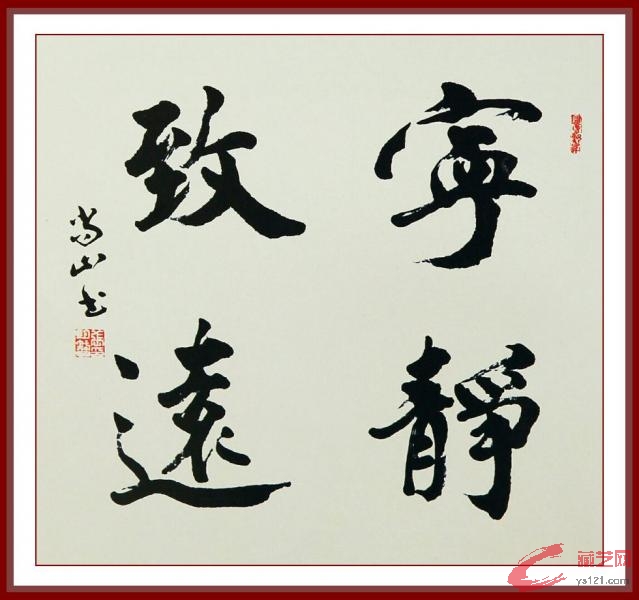 寧靜
致遠
尚山书
藏艺网
ys121.com